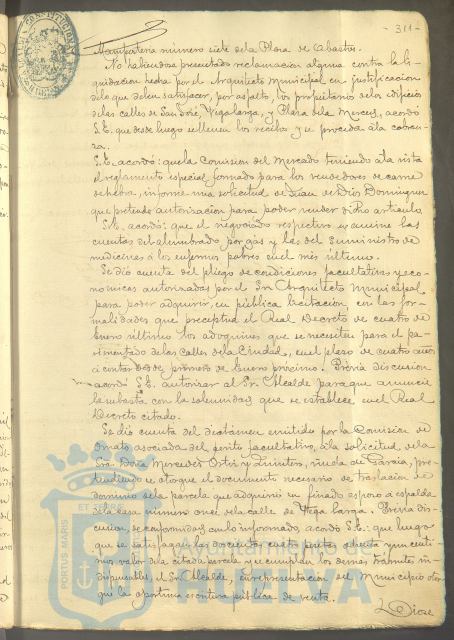 311
Mamposteria número siete de la Plaza de Abastos.
No habiendose presentado reclamacion alguna contra la li-
quidacion hecha por el Arquitecto Municipal en justificacion
de lo que deben satisfacer, por asfalto, los propietarios de los edificios
de las calles de San José, Vega larga, y Plaza de la Merced, acordó
S.E. que desde luego se llenen los recibos y se proceda á la cobran-
za.
S.E. acordó: que la Comision del Mercado teniendo á la vista
el reglamento especial formado para los vendedores de carne
de hebra, informe una solicitud de Juan de Dios Dominguez
que pretende autorizacion para poder vender dicho articulo.
S.E. acordó: que el negociado respectivo examine las
cuentas del alumbrado por gas y las del suministro de
medicinas á los enfermos pobres en el mes último.
Se dió cuenta del pliego de condiciones facultativas y eco-
nómicas autorizadas por el Sr. Arquitecto Municipal
para poder adquirir, en pública licitacion, con las for-
malidades que preceptua el Real Decreto de cuatro de
Enero último los adoquines que se necesiten para el pa-
vimentado de las calles de la Ciudad, en el plazo de cuatro años
á contar desde primero de Enero proximo. Prévia discusion
acordó S.E. autorizar al Sr. Alcalde para que anuncie
la subasta con la solemnidad que se establece en el Real
Decreto citado.
Se dió cuenta del dictamen emitido por la Comision de
Ornato asociada del perito facultativo, á la solicitud de la
Sra. Doña Mercedes Ortiz y Quintero, viuda de Garcia, pre-
tendiendo se otorgue el documento necesario de traslacion de
dominio de la parcela que adquirió su finado esposo á espalda
de la casa número once de la calle de Vega larga. Prévia dis-
cusion, de conformidad con lo informado, acordó S.E. que luego
que se satisfagan las doscientas cuatro pesetas ochenta y un centi-
mos valor de la citada parcela y se cumplan los demas tramites in-
dispensables, el Sr. Alcalde, en representacion del Municipio otor-
gue la oportuna escritura pública de venta.
PORTUS MARIS
ET TERRE
Ayuntamiento de
HUELVA